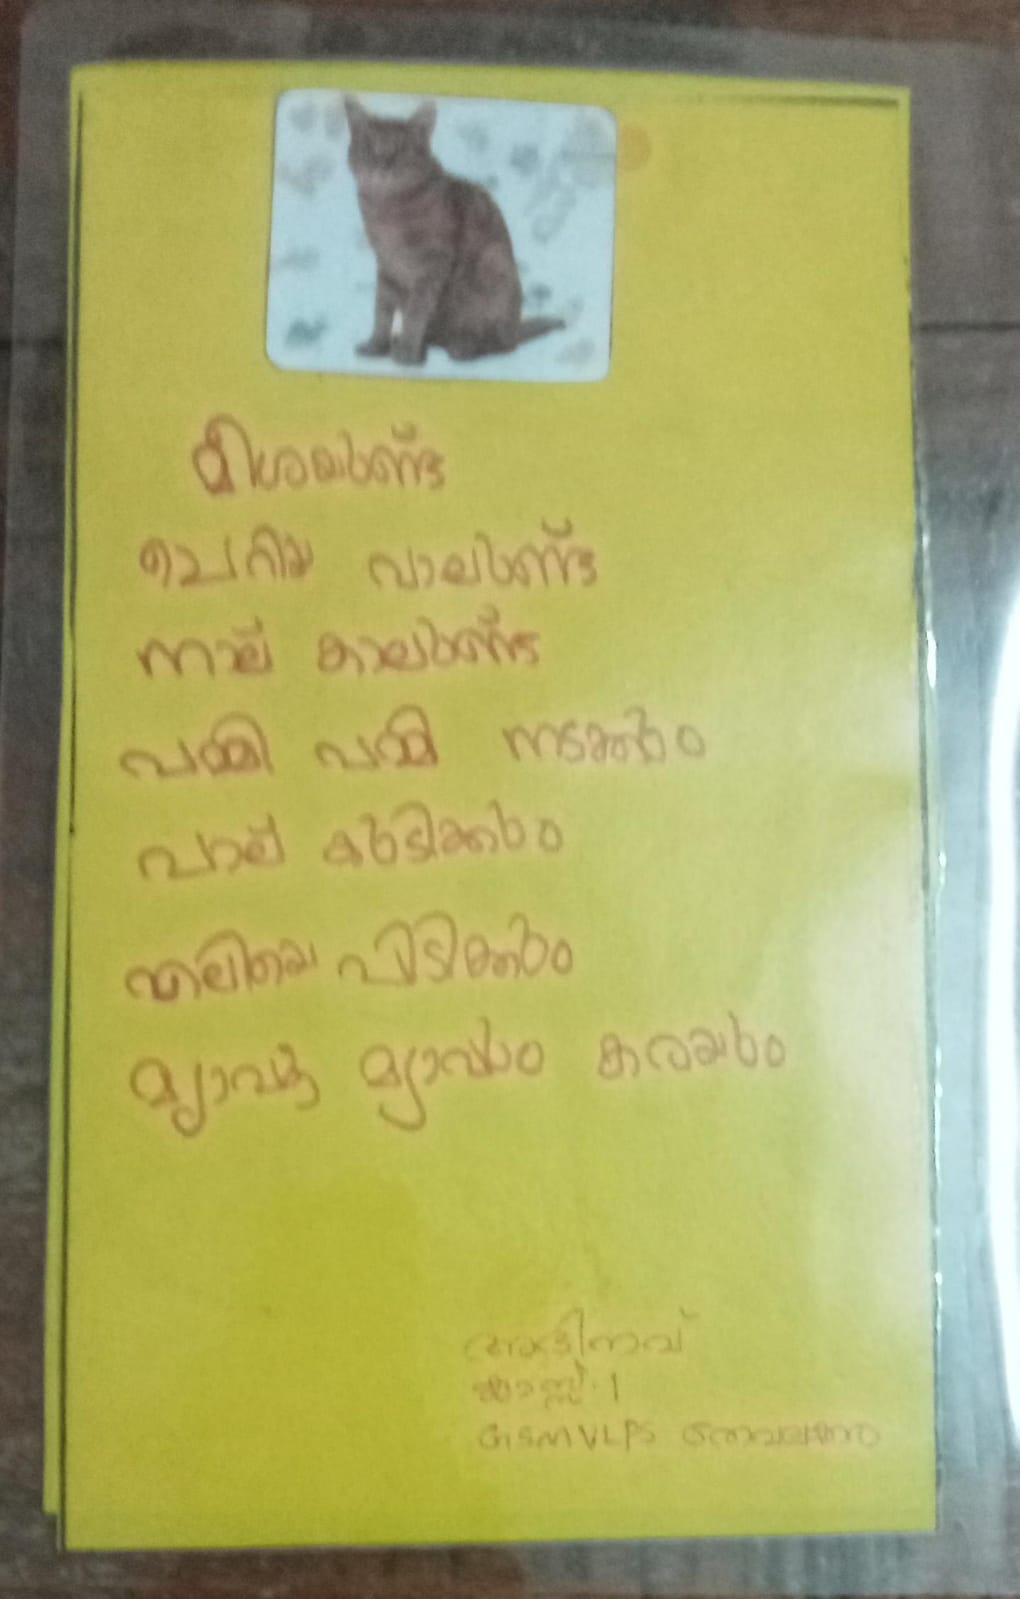 മീശയുണ്ട്
ചെറിയ വാലുണ്ട്
നാല് കാലുണ്ട്
പമ്മി പമ്മി നടക്കും
പാല് കുടിക്കും
എലിയെ പിടിക്കും
മ്യാവൂ മ്യാവും കരയും
അഭിനവ്
ക്ലാസ്സ്.1
GSMVLPS